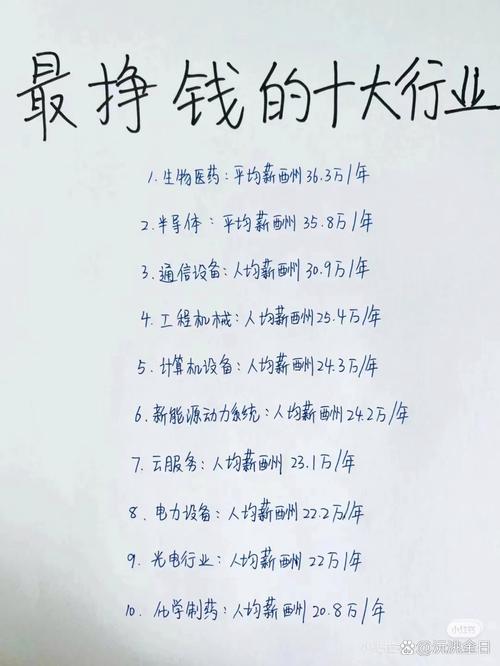 最挣钱的十大行业
1.生物医药：平均薪酬36.3万/年
2.半导体：平均薪酬35.8万/年
3.通信设备：人均薪酬30.9万/年
4.工程机械：人均薪酬25.4万/年
5.计算机设备：人均薪酬24.3万/年
6.新能源动力系统：人均薪酬24.2万/年
7.云服务：人均薪酬23.1万/年
8.电力设备：人均薪酬22.2万/年
9.光电行业：人均薪酬22万/年
10.化学制药：人均薪酬20.8万/年
小红书